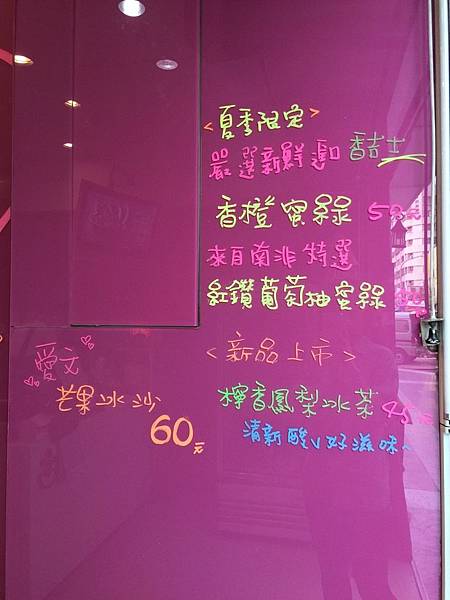 <夏季限定>
嚴選新鮮 香吉士
香橙蜜綠 50元
來自南非特選
紅鑽葡萄柚蜜綠
<新品上市>
檸香鳳梨冰茶 45元
清新酸ㄟ好滋味~
愛文
芒果冰沙
60元